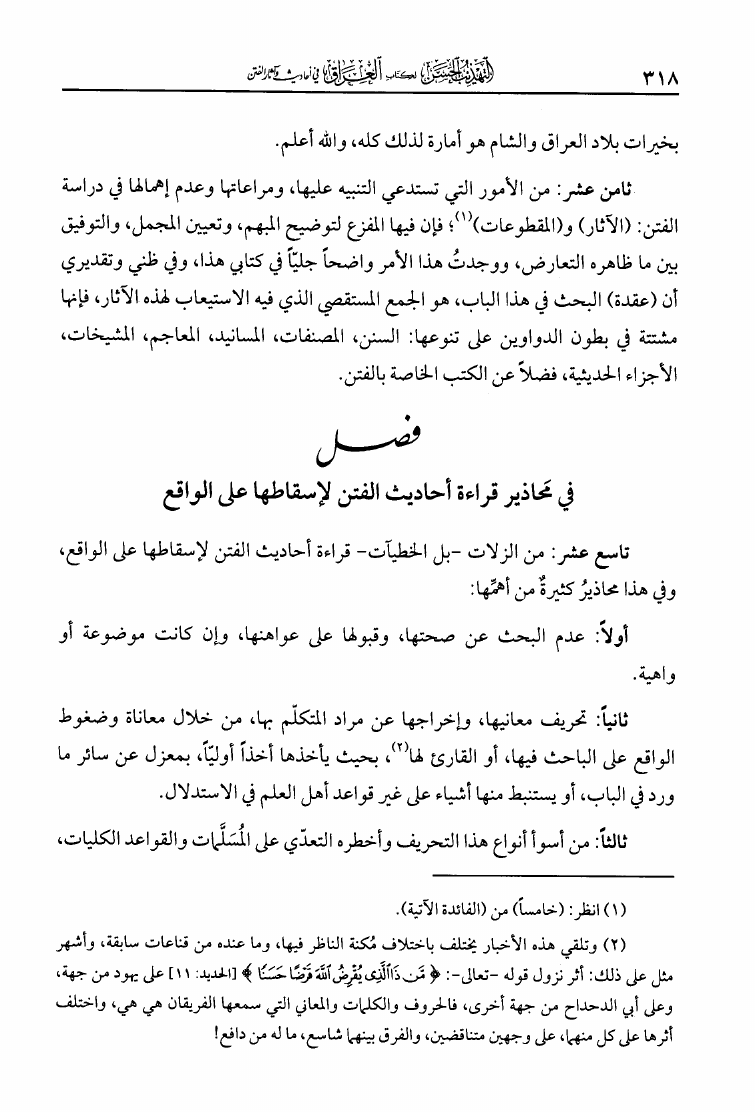 ٣١٨ التهذيب الحسن لكتاب العراق في أحاديث وآثار الفتن
بخيرات بلاد العراق والشام هو أمارة لذلك كله، والله أعلم.
ثامن عشر: من الأمور التي تستدعي التنبيه عليها، ومراعاتها وعدم إهمالها في دراسة
الفتن: (الآثار) و(المقطوعات)(١)؛ فإن فيها المفزع لتوضيح المبهم، وتعيين المجمل، والتوفيق
بين ما ظاهره التعارض، ووجدتُ هذا الأمر واضحاً جليّاً في كتابي هذا، وفي ظني وتقديري
أن (عقدة) البحث في هذا الباب، هو الجمع المستقصي الذي فيه الاستيعاب لهذه الآثار، فإنها
مشتتة في بطون الدواوين على تنوعها: السنن، المصنفات، المسانيد، المعاجم، المشيخات،
الأجزاء الحديثية، فضلاً عن الكتب الخاصة بالفتن.
فصل
في مَحاذير قراءة أحاديث الفتن لإسقاطها على الواقع
تاسع عشر: من الزلات -بل الخطيآت- قراءة أحاديث الفتن لإسقاطها على الواقع،
وفي هذا محاذيرُ كثيرةٌ من أهمِّها:
أولاً: عدم البحث عن صحتها، وقبولها على عواهنها، وإن كانت موضوعة أو
واهية.
ثانياً: تحريف معانيها، وإخراجها عن مراد المتكلّم بها، من خلال معاناة وضغوط
الواقع على الباحث فيها، أو القارئ لها(٢)، بحيث يأخذها أخذاً أوليّاً، بمعزل عن سائر ما
ورد في الباب، أو يستنبط منها أشياء على غير قواعد أهل العلم في الاستدلال.
ثالثاً: من أسوأ أنواع هذا التحريف وأخطره التعدّي على المُسَلَّمات والقواعد الكليات،
(١) انظر: (خامساً) من (الفائدة الآتية).
(٢) وتلقي هذه الأخبار يختلف باختلاف مُكنة الناظر فيها، وما عنده من قناعات سابقة، وأشهر
مثل على ذلك: أثر نزول قوله -تعالى-: ﴿مَّن ذَا ٱلَّذِى يُقْرِضُ ٱللَّهَ قَرْضًا حَسَنًا﴾ [الحديد: ١١] على يهود من جهة،
وعلى أبي الدحداح من جهة أخرى، فالحروف والكلمات والمعاني التي سمعها الفريقان هي هي، واختلف
أثرها على كل منهما، على وجهين متناقضين، والفرق بينهما شاسع، ما له من دافع!